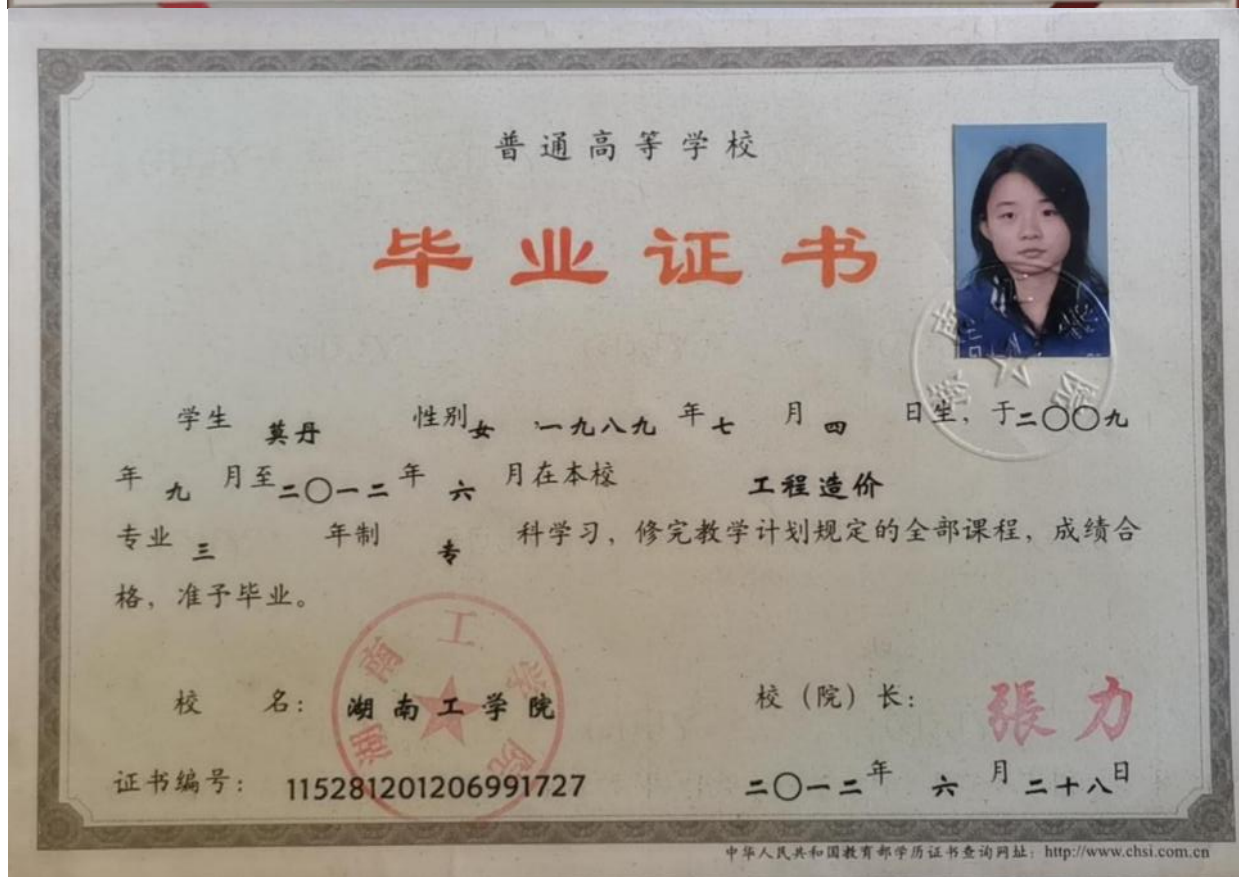 普通高等学校
毕业证书
学生 莫丹 性别女 一九八九年七月四日生，于二〇〇九
年九月至二〇一二年六月在本校 工程造价
专业 三 年制 专 科学习，修完教学计划规定的全部课程，成绩合
格，准予毕业。
校 名：湖南工学院
校（院）长：張力
证书编号：115281201206991727
二〇一二年六月二十八日
湖南工学院
中华人民共和国教育部学历证书查询网址：http://www.chsi.com.cn